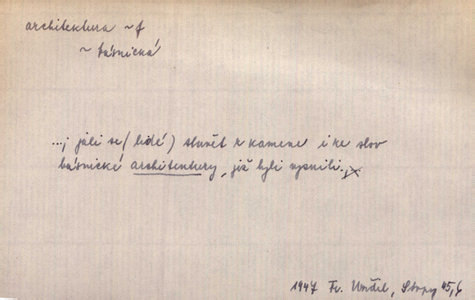 architektura ~ f
~ básnická
...; jali se (lidé) stavět z kamene i ze slov
básnické architektury, již byli vysnili.
1947 Fr.